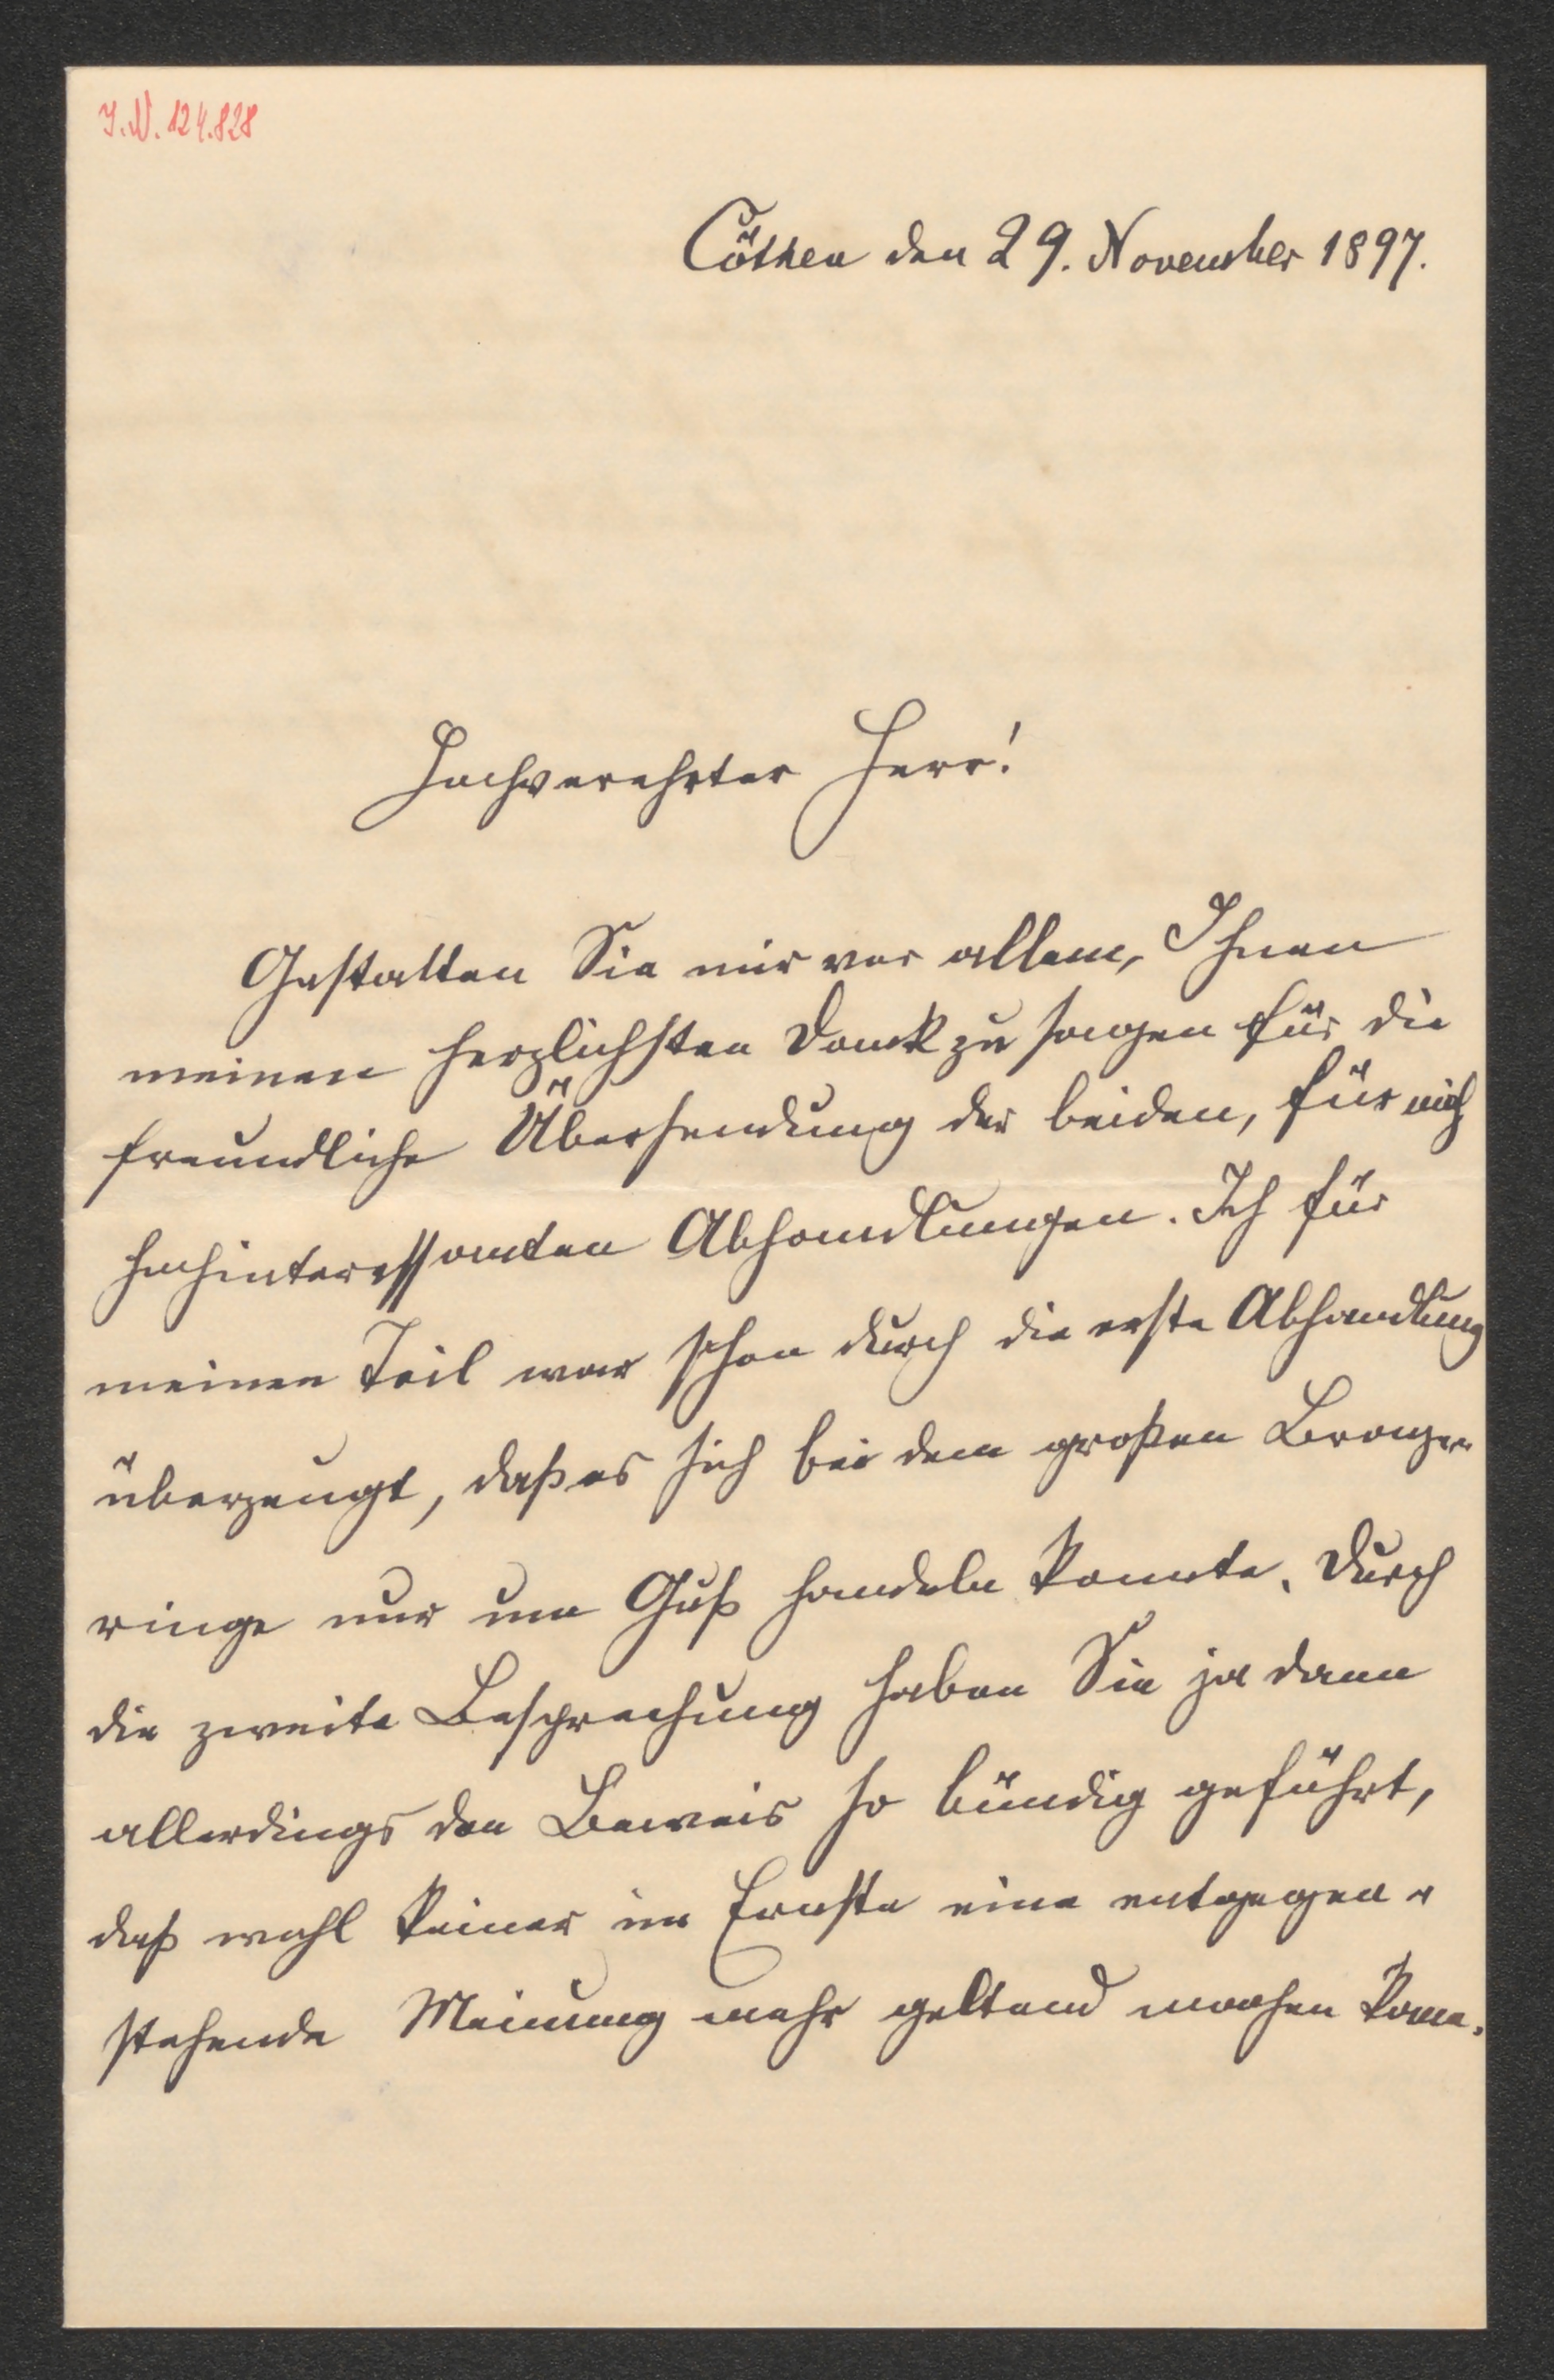 I.N. 124.828
Cöthen den 29. November 1897.
Hochverehrter Herr!
Gestatten Sie mir vor allem, Ihnen
meinen herzlichsten Dank zu sagen für die
freundliche Übersendung der beiden, für mich
hochinteressanten Abhandlungen. Ich für
meinen Teil war schon durch die erste Abhandlung
überzeugt, daß es sich bei dem großen Bronze-
ringe nur um Guß handeln konnte. Durch
die zweite Besprechung haben Sie ja dann
allerdings den Beweis so bündig geführt,
daß wohl keiner im Ernste eine entgegen-
stehende Meinung mehr geltend machen kann.